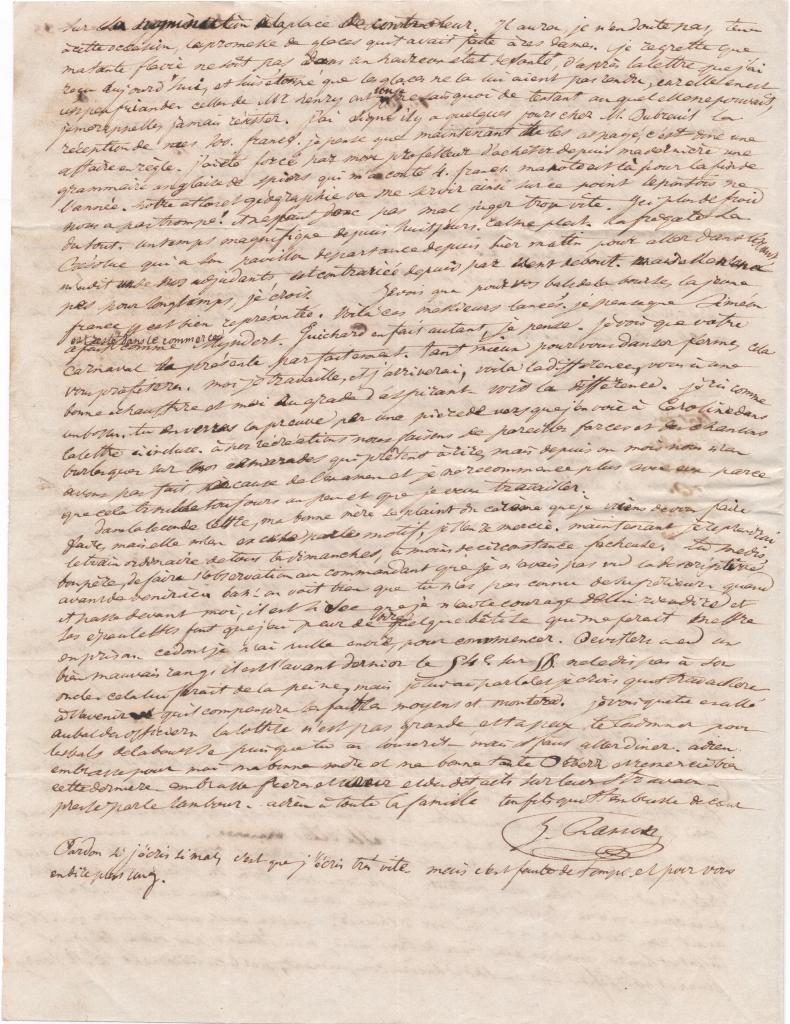 sur sa nomination à la place de controleur. Il aura, je n'en doute pas, tenu
à cette occasion, la promesse de glaces qu'il avait faite à ces dames. je regrette que
ma tante flavie ne soit pas dans un état de santé, d'après la lettre que j'ai
reçu aujourd'hui, et suis étonné que la glace ne la lui aient pas rendu, car elle en est
un peu friande. celles de Mr henry ont un je ne sais quoi de tentant auquel elle ne pouvait,
jamais résister. j'ai signé il y a quelques jours chez M. Dubreuil la
réception de mes francs. je pense que maintenant c'est une
affaire en règle. j'ai été forcé par mon professeur d'acheter depuis ma dernière une
grammaire anglaise de spiers qui m'a couté 4. francs. ma note est là pour la fin de
l'année. notre atlas et géographie va me servir ainsi sur ce point le prévôt ne
nous a pas trompé. il ne faut donc pas mal juger trop vite. Ici plus de froid
du tout. un temps magnifique depuis huit jours. calme plat. la frégate la
qui a son pavillon de partance depuis hier matin pour aller dans les mers
m'a dit un de nos adjudants est contrariée depuis par vent debout. mais elle n'en a
pas pour longtemps, je crois je vois que pour vos bals de la bourse, la jeune
france est bien représentée. voilà ces messieurs lancés. je pense que Siméon
est entré dans le commerce
a fait comme. Guichard en fait autant, je pense. je vois que votre
carnaval se présente parfaitement. tant mieux pour vous danser ferme, cela
vous profitera. moi je travaille, et j'arriverai, voilà la différence, vous à une
bonne échauffure et moi au grade d'aspirant. voilà la différence. je ris comme
un bossu. tu en verras la preuve par une pièce de vers que j'envoie à Caroline dans
la lettre ci incluse. à nos récréations nous faisons de pareilles farces et des chansons
burlesques sur nos camarades qui prêtent à rire, mais depuis un mois nous n'en
avons pas fait à cause de l'examen et je ne recommence plus avec eux parce
que cela trouble toujours un peu et que je veux travailler.
Dans la seconde lettre, ma bonne mère se plaint du carême que je viens de vous faire
faire, mais elle m'en excuse par le motif, je l'en remercie. maintenant je reprendrai
le train ordinaire de tous les dimanches, à moins de circonstance facheuse. tu me dis,
bon père, de faire l'observation au commandant que je n'avais pas vu la
avant de venir ici. bah! on voit bien que tu n'as pas connu de supérieurs, quand
il passe devant moi, il est si sec que je n'ai le courage de lui rien dire et
les épaulettes font que j'ai peur de dire quelque bêtise qui me ferait mettre
en prison ce dont je n'ai nulle envie, pour commencer. a eu un
bien mauvais rang, il est l'avant dernier le 54e sur 55. ne le dis pas à son
oncle. cela lui ferait de la peine, mais je lui ai parlé et je crois qu'il travaillera
à l'avenir et qu'il compensera la faible moyens et montera. je vois que tu es allé
au bal des officiers la lotte n'est pas grande, est à peu pour
les bals de la bourse puisque tu as souscrit. mais il faut aller diner. adieu
embrasse pour moi ma bonne mère et ma bonne tante et remercie bien
cette dernière embrasse frères et soeur et dis succès sur leurs travaux
pressé par le tambour. adieu à toute la famille ton fils qui t'embrasse de coeur
Pardon si j'écris si mal, c'est que j'écris très vite mais c'est faute de temps. et pour vous
en dire plus long.